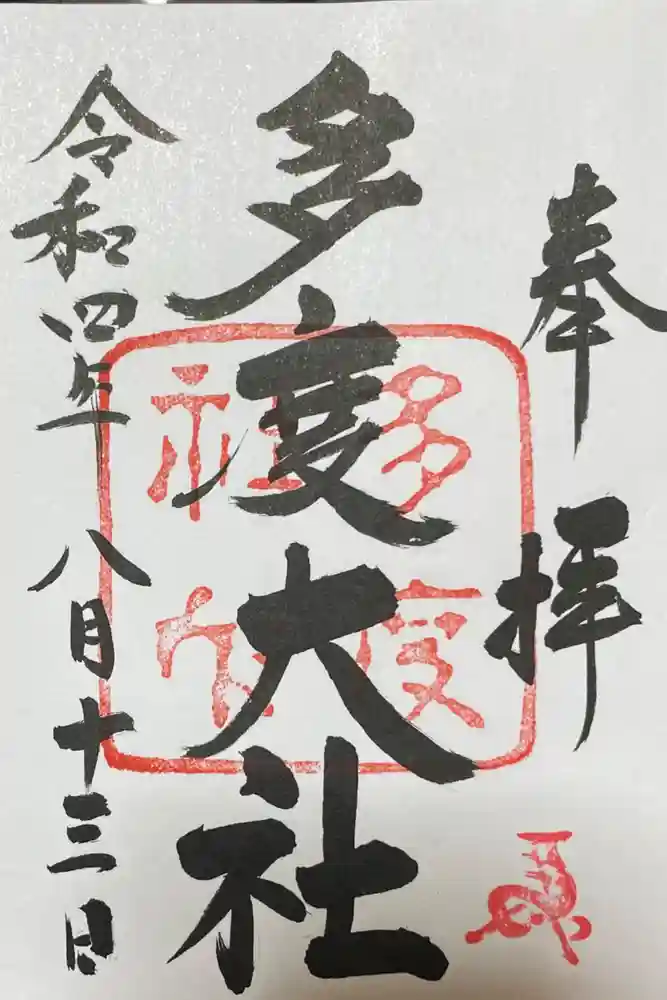 奉拝
多度大社
多度
社印
令和四年八月十三日